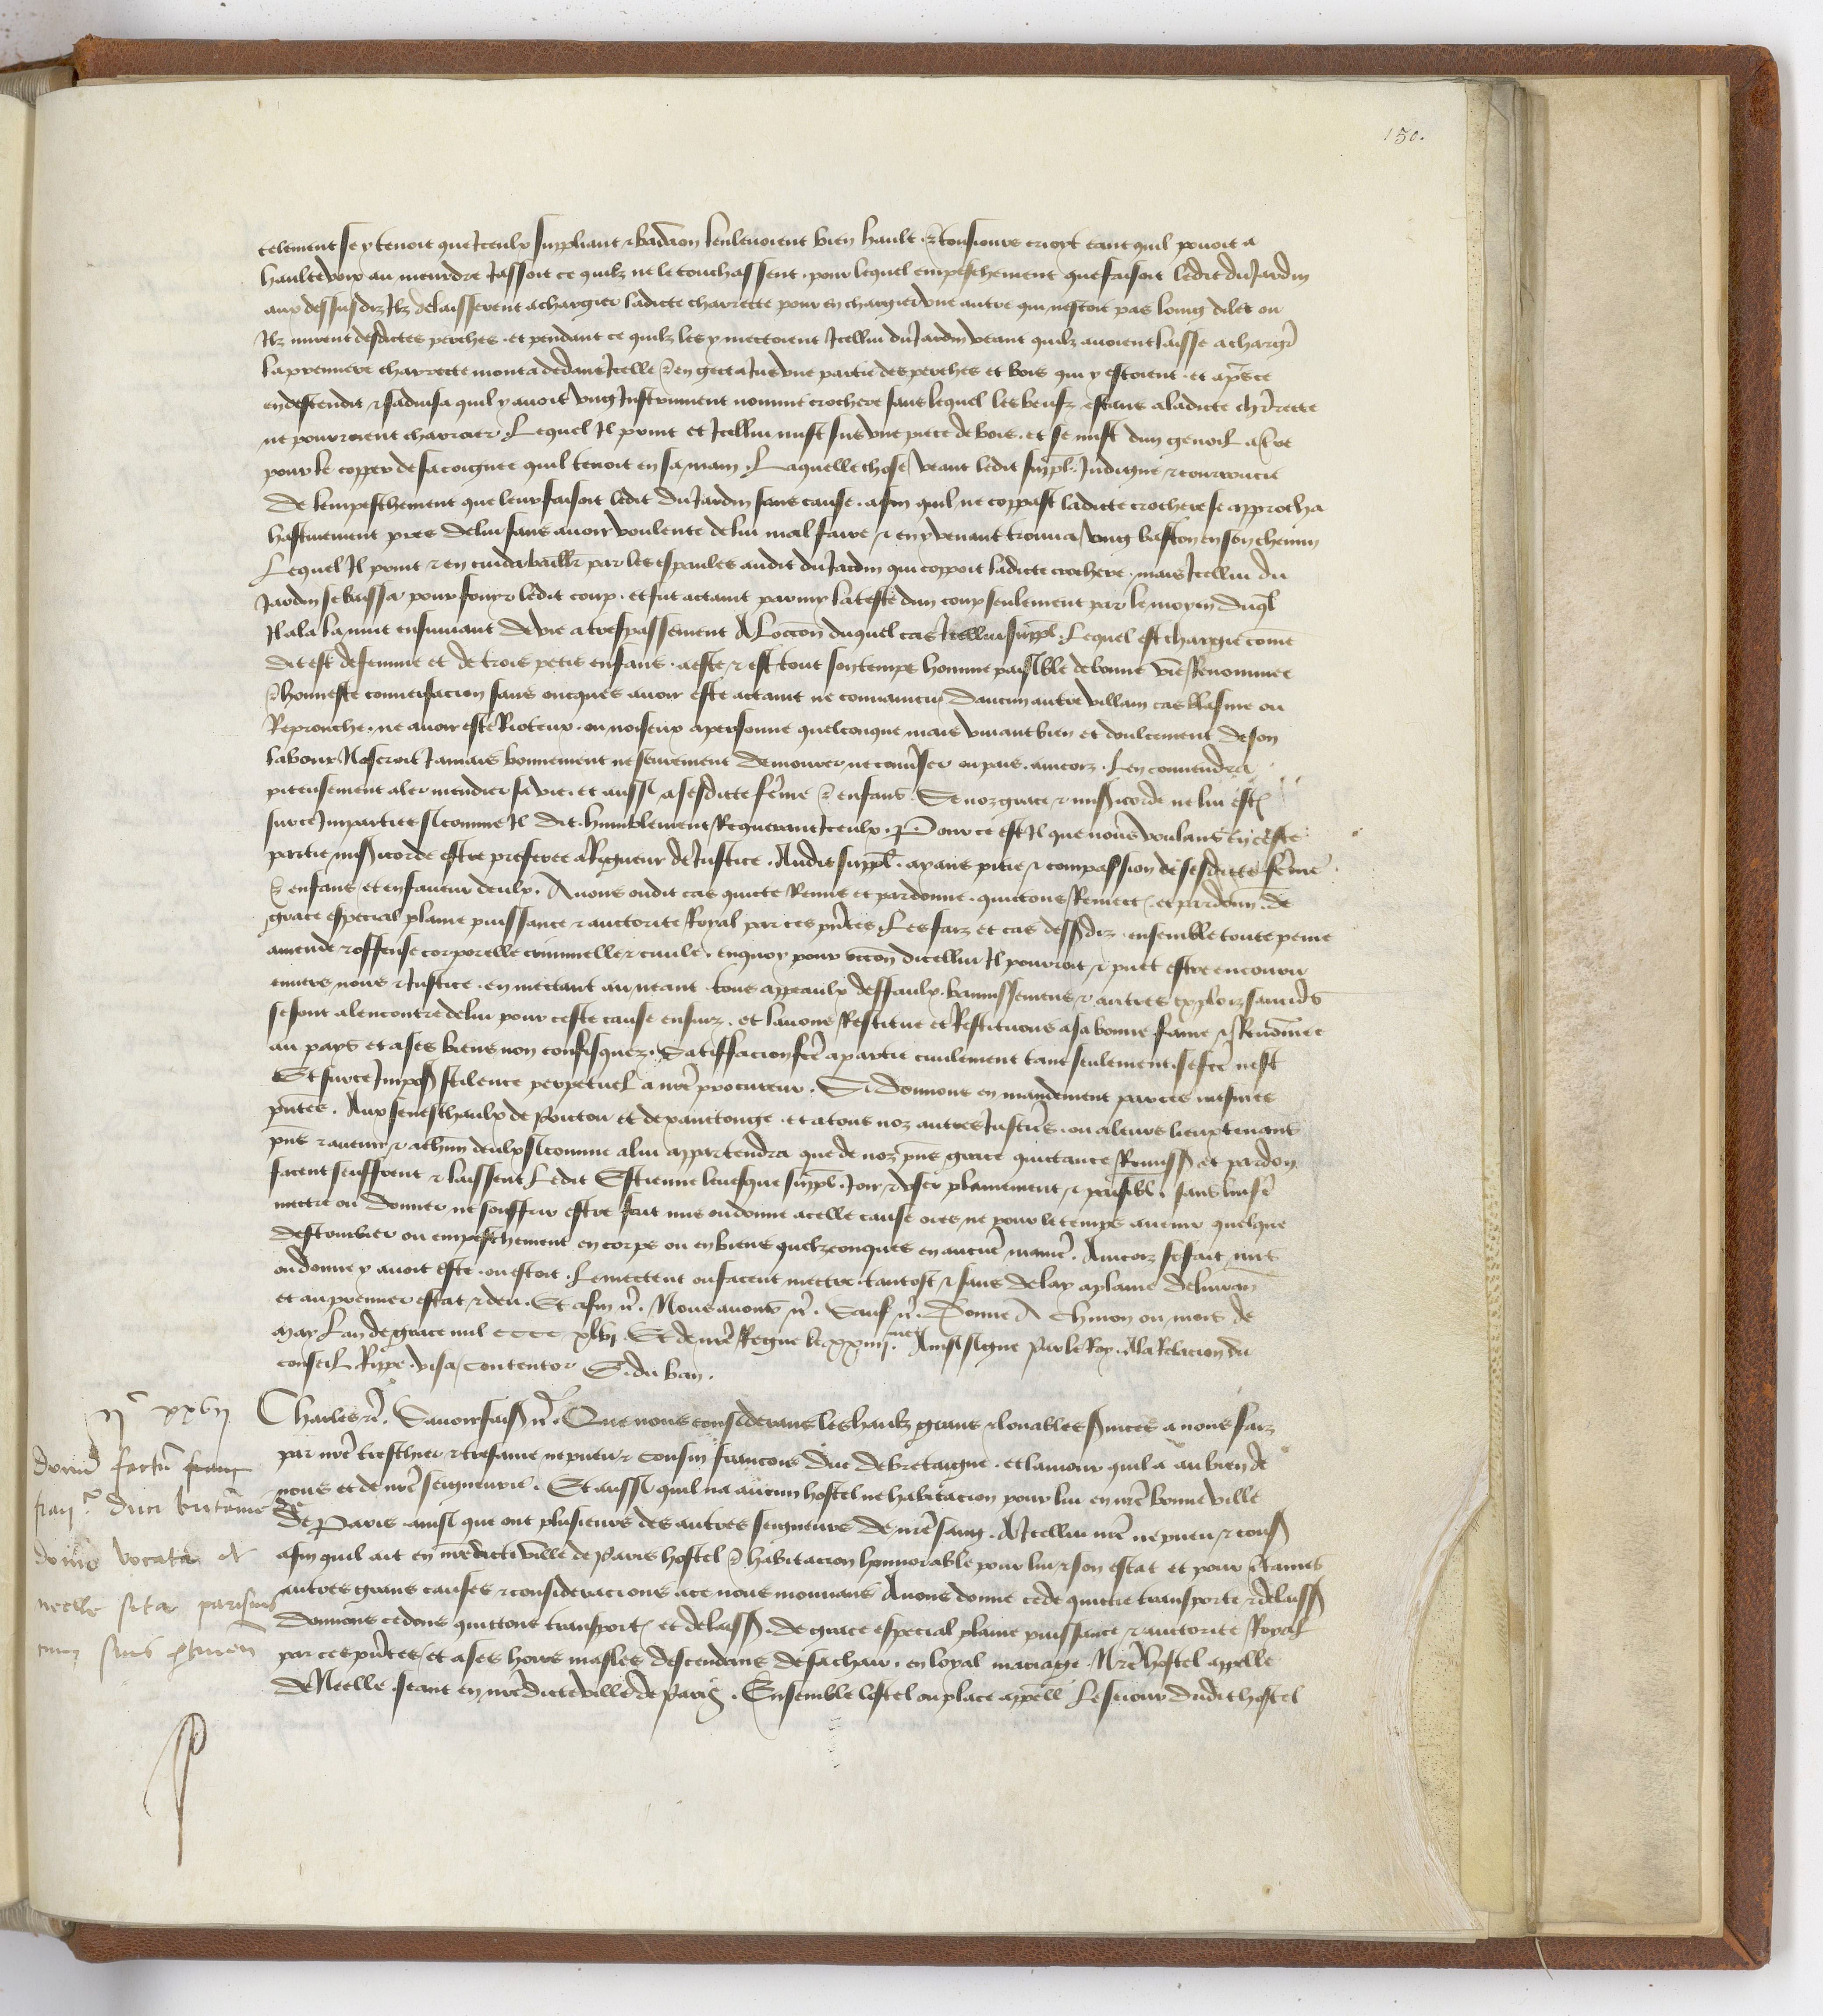 150.
telement se y tenoit que Iceulx suppliant & badaon lenlevoient bien hault. & tousiours crioyt tant quil povoit a
haulte voix au meurdre Jassoit ce quilz ne le touchassent. pour lequel empeschement que faisoit ledit du Jardin
aux dessusdiz Ilz delaisserent a chargier ladicte charrecte pour en chargier une autre qui nestoit pas loing dilec ou
Ilz mirent desdictes perches. et pendant ce quilz les y mectoient Icellui du Jardin veant quilz avoient laisse a chargr
la premiere charrecte monta dedans Icelle & en gecta Jus une partie des perches et bois qui y estoient. et apres ce
en descendit & sadvisa quil y avoit ung Instrument nomme crochere sans lequel les beufz estans a ladicte chrrecte
ne pourroient charroier. Lequel Il print et Icellui mist sus une piece de bois. et se mist dun genoil a tre
pour le copper de sa coignee quil tenoit en sa main. Laquelle chose veant ledit suppl. Indigne & courroucie
de lempeschement que leur faisoit ledit du Jardin sans cause. afin quil ne coppast ladicte crochere se approcha
hastivement pres de lui sans avoir voulente de lui mal faire, & en y venant trouva ung baston en son chemin
Lequel Il print & en cuida baillr par les espaules audit du Jardin qui coppoit ladicte crochere. mais Icellui du
Jardin se baissa pour fouyr ledit coup. et fut actaint parmy la teste dun coup seulement par le moyen duql
Il ala la nuit ensuivant de vie a trespassement A Loccon duquel cas Icellui suppl. Lequel est chargie come
dit est de femme et de trois petis enfans. a este & est tout son temps homme paisible de bonne vie Renommee
& honneste conversacion sans oncques avoir este actaint ne convaincu daucun autre villain cas blasme ou
Reprouche. ne avoir este Rioteux. ou noiseux a personne quelconque mais vivant bien et doulcement de son
labour Noseroit Jamais bonnement ne seurement demourer ne converser ou pais. aincoiz. Len conviendra
piteusement aler mendier sa vie. et aussi a sesdictes feme & enfans. Se noz grace & misicorde ne lui est
sur ce Impartiee sicomme Il dit. humblement Requerant Iceulx. Pour ce est Il que nous voulans en ceste
partie misicorde estre preferee a Rigueur de Justice. Audit suppl. ayans pitie & compassion de sesdictes feme
& enfans et en faveur deulx. Avons oudit cas quicte Remis et pardonne. quictons Remect. et pardonn. de
grace especial plaine puissance & auctorite Royal par ces pntes. Les faiz et cas dessdiz. ensemble toute peine
amende & offense corporelle criminelle & civile. en quoy pour occon dicellui Il pourroit & puet estre encouru
envers nous & Justice. en mectant au neant tous appeaulx deffaulx. bannissemens & autres exploiz saucuns
sesont alencontre de lui pour ceste cause ensuiz. et lavons Restitue et Restituons a sa bonne fame & Renommee
au pays et a ses biens non confisquez. Satisfacion fcte a partie civilement tant seulement. se fcte nest
Et sur ce Imposs scilence perpetuel a nre procureur. Si donnons en mandement par ces mesmes
pntes. Aux seneschaulx de Poictou et de xanctonge. et a tous noz autres Justic's. ou a leurs lieuxtenans
pns & avenir & a chun deulx sicomme a lui appartendra que de noz pns grace quictance Remiss et pardon
facent seuffrent & laissent Ledit Estienne levesque suppl. Joir & user plainement & paisibl. sans lui fe
mectre ou donner ne souffrir estre fait mis ou donne a celle cause ores ne pour le temps avenir quelque
destourbier ou empeschement en corps ou en biens quelzconques en aucune manie. Aincoiz se fait mis
ou donne y avoit este. ou estoit. Le mectent ou facent mectre. tantost & sans delay a plaine delivran
et au premier estat & deu. Et afin &c. Nous avons &c. Sauf &c. Donne A Chinon ou mois de
May Lan de grace mil CCCC xlvj. Et de nre Regne le xxiiij.me Ainsi signe Par le Roy. A la Relacion du
conseil. Rippe. visa Contentor E. du ban.
ijc xxvij
Charles &c. Savoir fais &c. Que nous considerans les haulz grans & louables svices a nous faiz
par nre treschier & tresame nepveu & cousin francois duc de bretaigne. et lamour quil a au bien de
nous et de nre seigneurie. Et aussi quil na aucun hostel ne habitacion pour lui en nre bonne ville
de Paris. ainsi que ont plusieurs des autres seigneurs de nre sang. A Icellui nre nepveu & cous
afin quil ait en nredicte ville de Paris hostel & habitacion honnorable pour lui & son estat et pour certaines
autres grans causes & consideracions a ce nous mouvans Avons donne cede quicte transporte & delaiss
donnons cedons quictons transport. et delaiss. de grace especial plaine puissance & auctorite Royal
par ces pntes. et a ses hoirs masles descendans de sa chair. en loyal mariage. Nre hostel appelle
de Neelle. seant en nredicte ville de Paris. Ensemble lostel ou place appelle Le seiour dudit hostel
donum factum franc
franc.o duci britanie de
domo vocata de
neelle sita parisius
cum suis ptinen